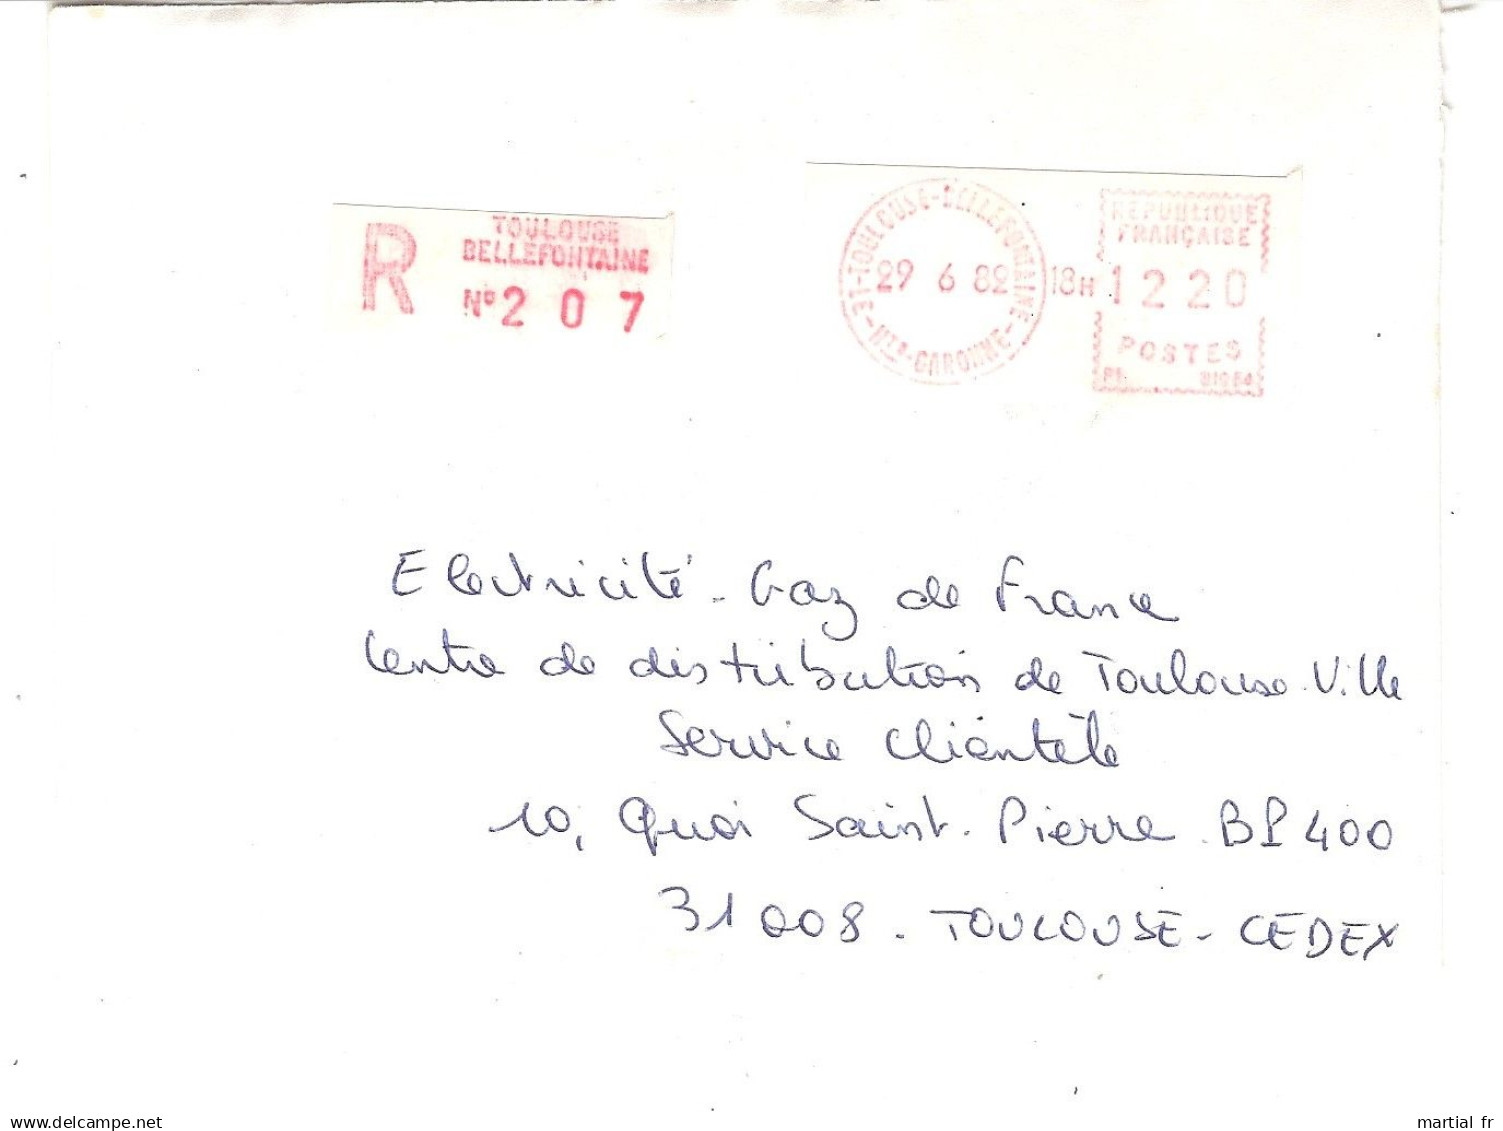 R
TOULOUSE
BELLEFONTAINE
N° 2 0 7
31-TOULOUSE-BELLEFONTAINE
29 6 82 18H
HTE-GARONNE
REPUBLIQUE
FRANÇAISE
12 20
POSTES
Electricité - Gaz de France
Centre de distribution de Toulouse-Ville
Service Clientèle
10, Quai Saint-Pierre BP 400
31008 - TOULOUSE - CEDEX
www.delcampe.net
martial fr